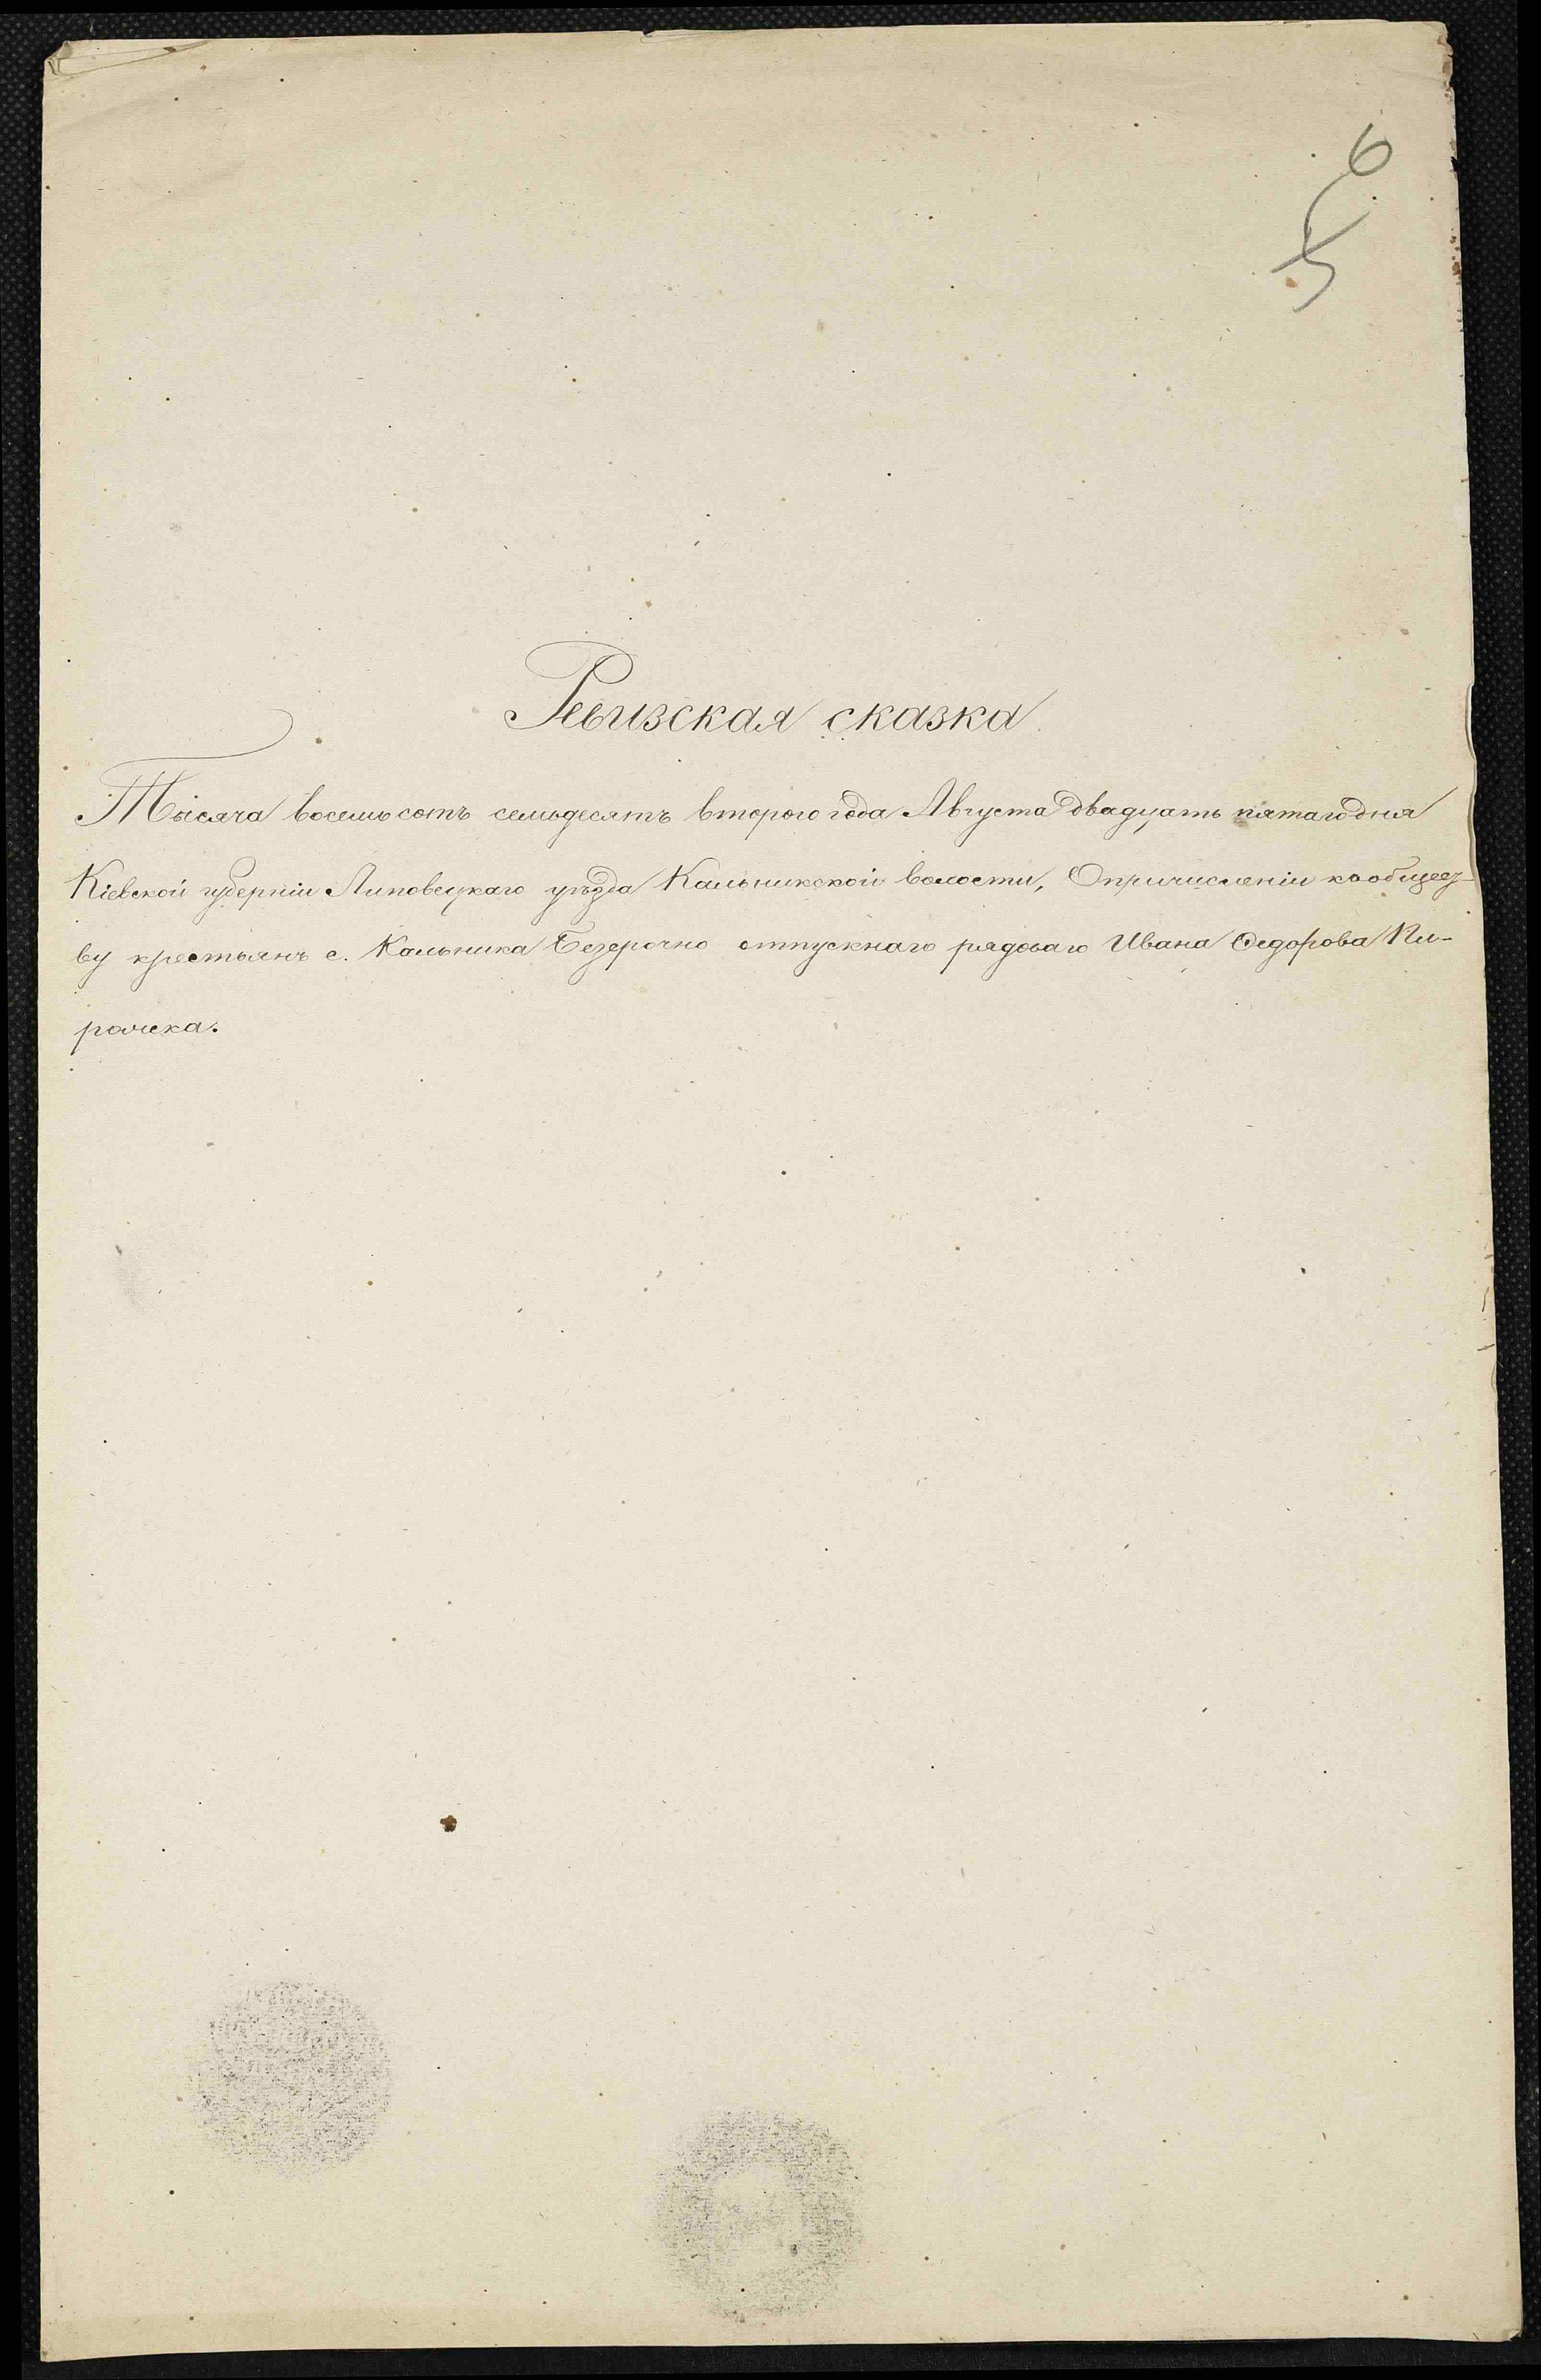 6
5
Ревизская сказка
Тысяча восемьсотъ семьдесятъ втораго года Августа двадцать пятаго дня
Кіевской губерніи Липовецкаго уѣзда Кальникской волости, О причисленіи къ общест-
ву крестьянъ с. Кальника Безсрочно отпускнаго рядоваго Ивана Федорова Пи-
рожека.